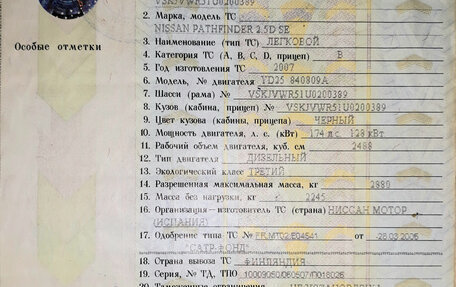 VSKJVWR51U0200389
2. Марка, модель ТС
NISSAN PATHFINDER 2.5D SE
Особые отметки
3. Наименование (тип ТС) ЛЕГКОВОЙ
4. Категория ТС (А, В, С, D, прицеп) В
5. Год изготовления ТС 2007
6. Модель, № двигателя YD25 840809A
7. Шасси (рама) № VSKJVWR51U0200389
8. Кузов (кабина, прицеп) № VSKJVWR51U0200389
9. Цвет кузова (кабины, прицепа) ЧЕРНЫЙ
10. Мощность двигателя, л. с. (кВт) 174 л.с. 128 кВт
11. Рабочий объем двигателя, куб. см 2488
12. Тип двигателя ДИЗЕЛЬНЫЙ
13. Экологический класс ТРЕТИЙ
14. Разрешенная максимальная масса, кг 2880
15. Масса без нагрузки, кг 2245
16. Организация – изготовитель ТС (страна) НИССАН МОТОР
(ИСПАНИЯ)
17. Одобрение типа ТС № FR.MT02.E04541 от 28.03.2006
"САТР-ФОНД"
18. Страна вывоза ТС ФИНЛЯНДИЯ
19. Серия, № ТД, ТПО 10009050/060507/П018026
20. Таможенные ограничения